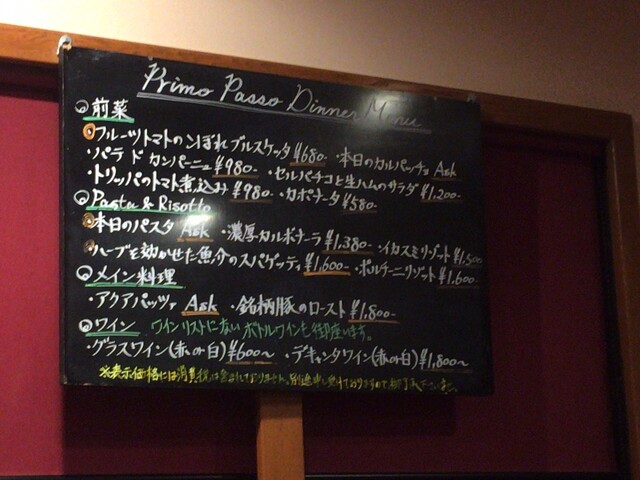 Primo Passo Dinner Menu
◎前菜
フルーツトマトのこぼれブルスケッタ ¥680- ・本日のカルパッチョ Ask
・パテ ド カンパーニュ ¥980- ・セルバチコと生ハムのサラダ ¥1,200-
・トリッパのトマト煮込み ¥980- ・カポナータ ¥580-
◎Pasta & Risotto
本日のパスタ Ask ・濃厚カルボナーラ ¥1,380- ・イカスミリゾット ¥1,500-
ハーブを効かせた魚介のスパゲッティ ¥1,600- ・ポルチーニリゾット ¥1,600-
◎メイン料理
・アクアパッツァ Ask ・銘柄豚のロースト ¥1,800-
◎ワイン ワインリストにないボトルワインも御座います。
・グラスワイン(赤or白) ¥600〜 ・デキャンタワイン(赤or白) ¥1,800〜
※表示価格には消費税は含まれておりません。別途申し受けておりますので